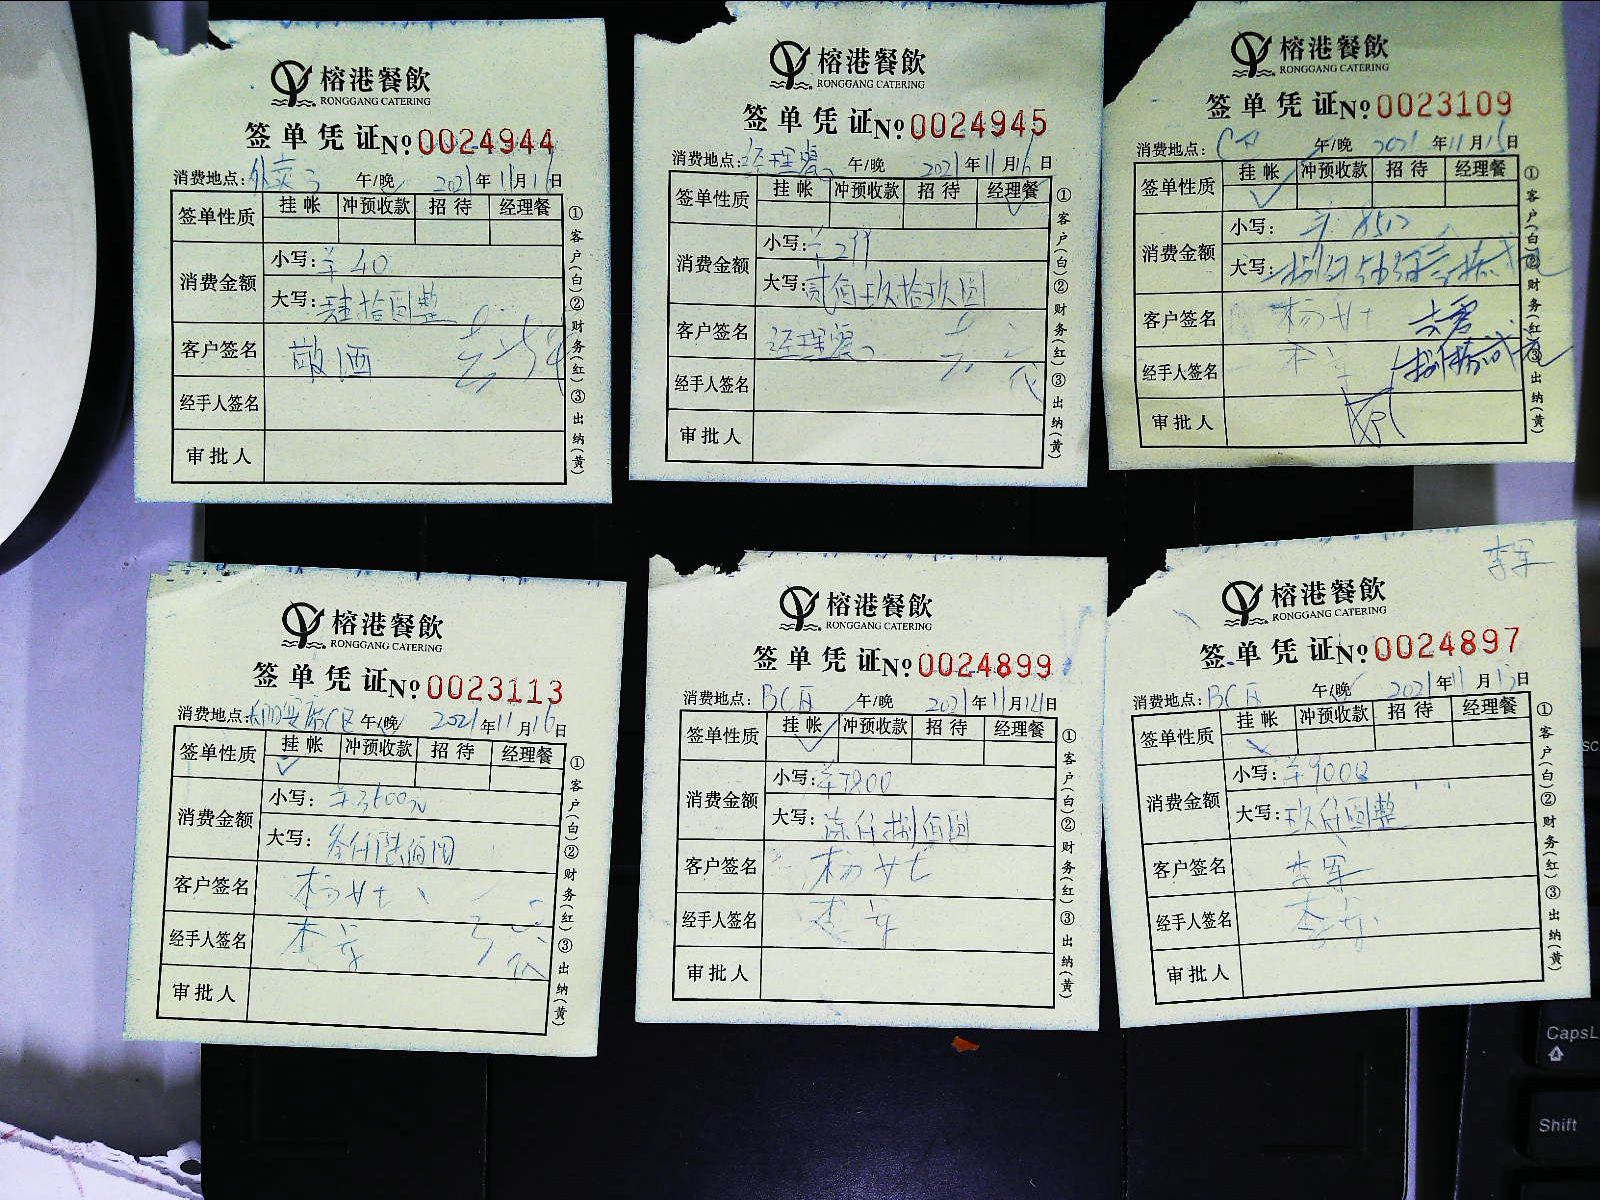 榕港餐飲
RONGGANG CATERING
签单凭证 No 0024944
消费地点: 外卖 午/晚 2021年11月16日
签单性质 挂帐 冲预收款 招待 经理餐
消费金额 小写: 羊40
大写: 肆拾圆整
客户签名 敬酒
经手人签名
审批人
①客户(白)②财务(红)③出纳(黄)
榕港餐飲
RONGGANG CATERING
签单凭证 No 0024945
消费地点: 经理餐 午/晚 2021年11月16日
签单性质 挂帐 冲预收款 招待 经理餐
消费金额 小写: 羊299
大写: 贰佰玖拾玖圆
客户签名 经理餐
经手人签名
审批人
①客户(白)②财务(红)③出纳(黄)
榕港餐飲
RONGGANG CATERING
签单凭证 No 0023109
消费地点: 午/晚 2021年11月15日
签单性质 挂帐 冲预收款 招待 经理餐
消费金额 小写:
大写:
客户签名 杨女士
经手人签名
审批人
①客户(白)②财务(红)③出纳(黄)
榕港餐飲
RONGGANG CATERING
签单凭证 No 0023113
消费地点: 午/晚 2021年11月16日
签单性质 挂帐 冲预收款 招待 经理餐
消费金额 小写: 羊3600元
大写: 叁仟陆佰圆
客户签名 杨女士
经手人签名
审批人
①客户(白)②财务(红)③出纳(黄)
榕港餐飲
RONGGANG CATERING
签单凭证 No 0024899
消费地点: BC区 午/晚 2021年11月14日
签单性质 挂帐 冲预收款 招待 经理餐
消费金额 小写: 羊7800
大写: 仟捌佰圆
客户签名 杨女士
经手人签名
审批人
①客户(白)②财务(红)③出纳(黄)
李军
榕港餐飲
RONGGANG CATERING
签单凭证 No 0024897
消费地点: BC区 午/晚 2021年11月13日
签单性质 挂帐 冲预收款 招待 经理餐
消费金额 小写: 羊9000
大写: 玖仟圆整
客户签名 李军
经手人签名
审批人
①客户(白)②财务(红)③出纳(黄)
CapsL
Shift